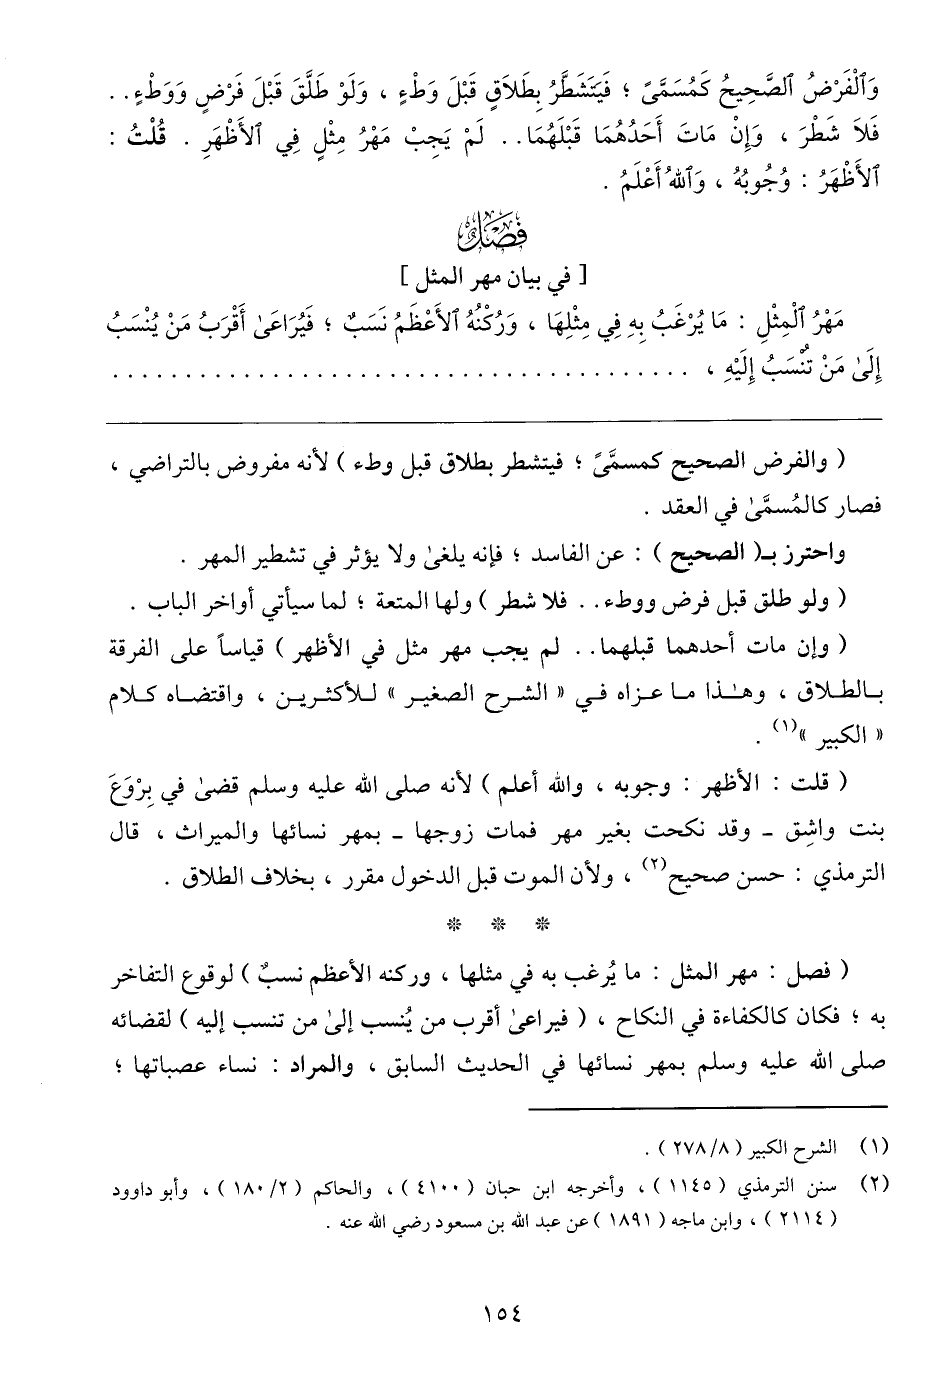 وَٱلْفَرْضُ ٱلصَّحِيحُ كَمُسَمَّىً ؛ فَيَتَشَطَّرُ بِطَلاَقٍ قَبْلَ وَطْءٍ ، وَلَوْ طَلَّقَ قَبْلَ فَرْضٍ وَوَطْءٍ . .
فَلاَ شَطْرَ ، وَإِنْ مَاتَ أَحَدُهُمَا قَبْلَهُمَا . . لَمْ يَجِبْ مَهْرُ مِثْلٍ فِي ٱلأَظْهَرِ . قُلْتُ :
ٱلأَظْهَرُ : وُجُوبُهُ ، وَٱللهُ أَعْلَمُ .
فَصْلٌ
[ في بيان مهر المثل ]
مَهْرُ ٱلْمِثْلِ : مَا يُرْغَبُ بِهِ فِي مِثْلِهَا ، وَرُكْنُهُ ٱلأَعْظَمُ نَسَبٌ ؛ فَيُرَاعَىٰ أَقْرَبُ مَنْ يُنْسَبُ
إِلَىٰ مَنْ تُنْسَبُ إِلَيْهِ ، . . . . . . . . . . . . . . . . . . . . . . . . . . . . . . . . . . . . . . . .
( والفرض الصحيح كمسمَّىً ؛ فيتشطر بطلاق قبل وطء ) لأنه مفروض بالتراضي ،
فصار كالمُسمَّىٰ في العقد .
واحترز بـ( الصحيح ) : عن الفاسد ؛ فإنه يلغىٰ ولا يؤثر في تشطير المهر .
( ولو طلق قبل فرض ووطء . . فلا شطر ) ولها المتعة ؛ لما سيأتي أواخر الباب .
( وإن مات أحدهما قبلهما . . لم يجب مهر مثل في الأظهر ) قياساً على الفرقة
بالطلاق ، وهـٰذا ما عزاه في « الشرح الصغير » للأكثرين ، واقتضاه كلام
« الكبير »(١) .
( قلت : الأظهر : وجوبه ، والله أعلم ) لأنه صلى الله عليه وسلم قضىٰ في بِرْوَعَ
بنت واشِق ـ وقد نكحت بغير مهر فمات زوجها ـ بمهر نسائها والميراث ، قال
الترمذي : حسن صحيح(٢) ، ولأن الموت قبل الدخول مقرر ، بخلاف الطلاق .
* * *
( فصل : مهر المثل : ما يُرغب به في مثلها ، وركنه الأعظم نسبٌ ) لوقوع التفاخر
به ؛ فكان كالكفاءة في النكاح ، ( فيراعىٰ أقرب من يُنسب إلىٰ من تنسب إليه ) لقضائه
صلى الله عليه وسلم بمهر نسائها في الحديث السابق ، والمراد : نساء عصباتها ؛
(١) الشرح الكبير ( ٢٧٨/٨ ) .
(٢) سنن الترمذي ( ١١٤٥ ) ، وأخرجه ابن حبان ( ٤١٠٠ ) ، والحاكم ( ١٨٠/٢ ) ، وأبو داوود
( ٢١١٤ ) ، وابن ماجه ( ١٨٩١ ) عن عبد الله بن مسعود رضي الله عنه .
١٥٤